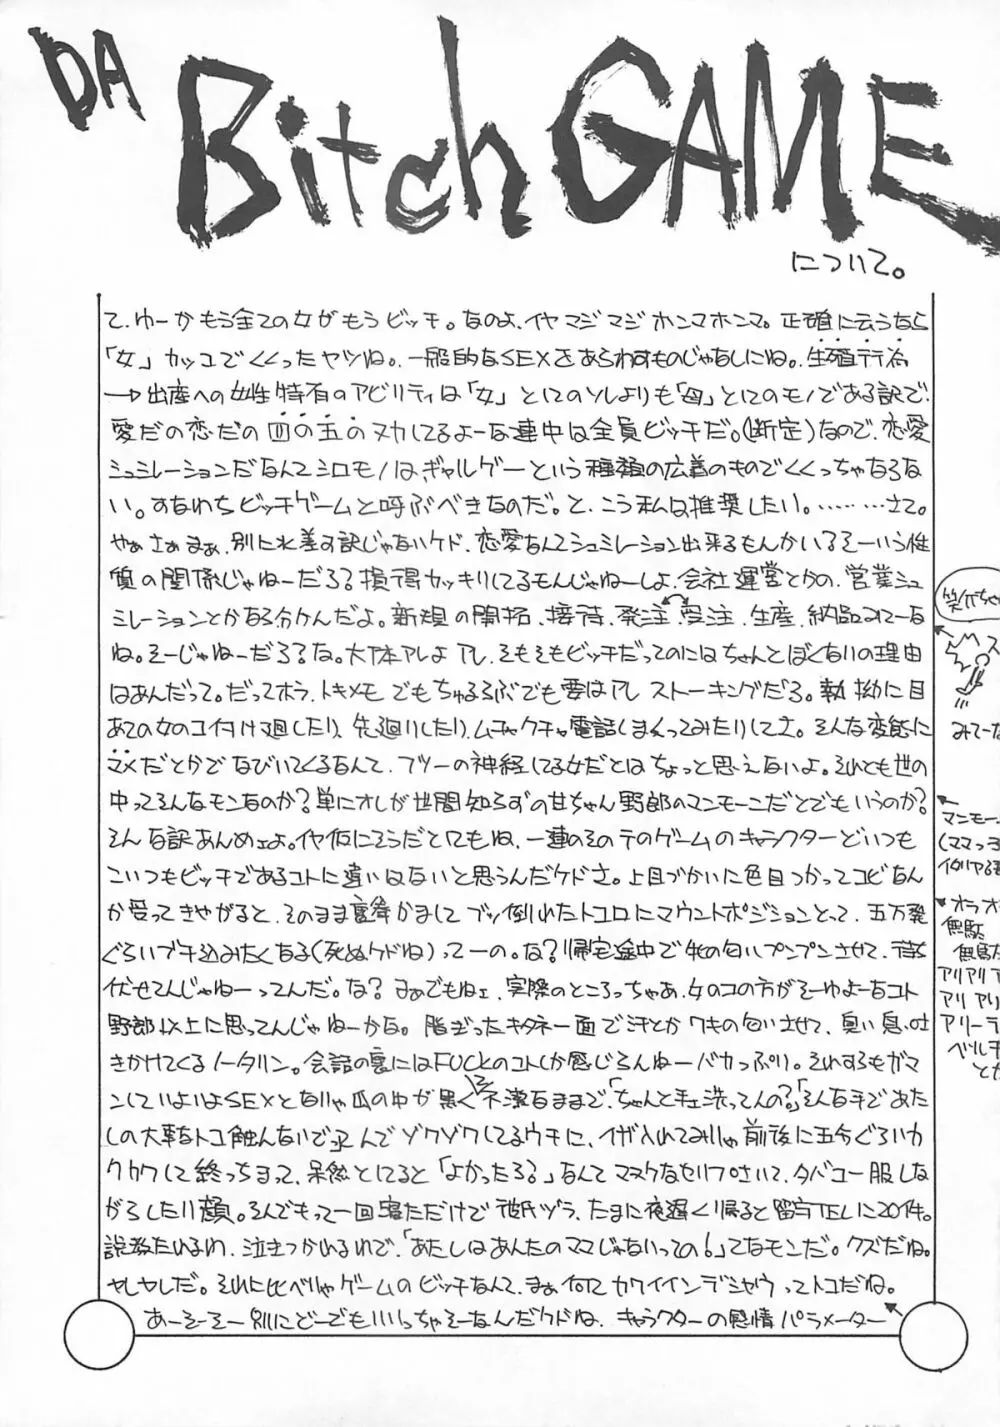 DA
Bitch GAME
について。
て、ゆーかもう全ての女がもうビッチ。なのよ、イヤマジマジホンマホンマ。正確に云うなら
「女」カッコでくくったヤツね。一般的なSEXをあらわすものじゃなしにね。生殖行為
→出産への女性特有のアビリティは「女」としてのソレよりも「母」としてのモノである訳で、
愛だの恋だの四の五のヌカしてるよーな連中は全員ビッチだ。(断定)なので、恋愛
シュミレーションだなんてシロモノはギャルゲーという種類の広義のものでくくっちゃならな
い。すなわちビッチゲームと呼ぶべきなのだ。と、こう私は推奨したい。………さて。
やぁさぁまぁ、別に水差す訳じゃないケド、恋愛なんてシュミレーション出来るもんかい?そーいう性
質の関係じゃねーだろ?損得カッキリしてるもんじゃねーしよ、会社運営とかの、営業シュ
ミレーションとかなら分かんだよ。新規の開拓、接待、発注、受注、生産、納品みてーな
ね。そーじゃねーだろ?な。大体アレよアレ、そもそもビッチだってのにはちゃんとぼくないの理由
はあんだって。だってホラ、トキメモでもちゅるるぶでも要はアレストーキングだろ。執拗に目
あての女のコ付け廻したり、先廻りしたり、ムチャクチャ電話しまくってみたりしてさ。そんな変態に
マメだとかでなびいてくるなんて、フツーの神経してる女だとはちょっと思えないよ。それとも世の
中ってそんなモンなのか?単にオレが世間知らずの甘ちゃん野郎のマンモーニだとでもいうのか?
そんな訳あんめェよ。イヤ仮にそうだとしてもね、一連のそのテのゲームのキャラクターどいつも
こいつもビッチであるコトに違いはないと思うんだケドさ。上目づかいに色目つかってコビなん
か売ってきやがると、そのまま裏拳かましてブッ倒れたトコロにマウントポジションとって、五万発
ぐらいブチ込みたくなる(死ぬケドね)っての。な?帰宅途中で女の匂いプンプンさせて、待ち
伏せてんじゃねーってんだ。な?まぁでもねェ、実際のところっちゃあ、女のコの方がそーゆよーなコト
野郎以上に思ってんじゃねーかな。脂ぎったキタネー面で汗とかワキの匂いさせて、臭い息吐
きかけてくるノータリン。会話の裏にはFUCKのコトしか感じらんねーバカっぷり。それすらもガマ
ンしていよいよSEXとなりゃ爪の中が黒く不潔なままで、「ちゃんと手ェ洗ってんの?」そんな手であた
しの大事なトコ触んないでってんでゾクゾクしてるウチに、イザ入れてみりゃ前後に五分ぐらいカ
クカクして終っちまって、呆然としてると「よかったろ?」なんてマヌケなセリフほざいて、タバコ一服しな
がらしたり顔。そんでもって一回寝ただけで彼氏ヅラ、たまに夜遅く帰ると留守TELに20件。
説教たれるわ、泣きつかれるわで、「あたしはあんたのママじゃないっての!」てなモンだ。クズだね。
ヤレヤレだ。それに比べりゃゲームのビッチなんて、まぁ何てカワイインデショウってトコだね。
あーそーそー別にどーでもいいっちゃそーなんだケドね、キャラクターの感情パラメーター
みてーな
マンモーニ
(ママっ子
オラオ
無駄
無駄
アリアリア
アリアリ
アリーデ
ベルチ
とか